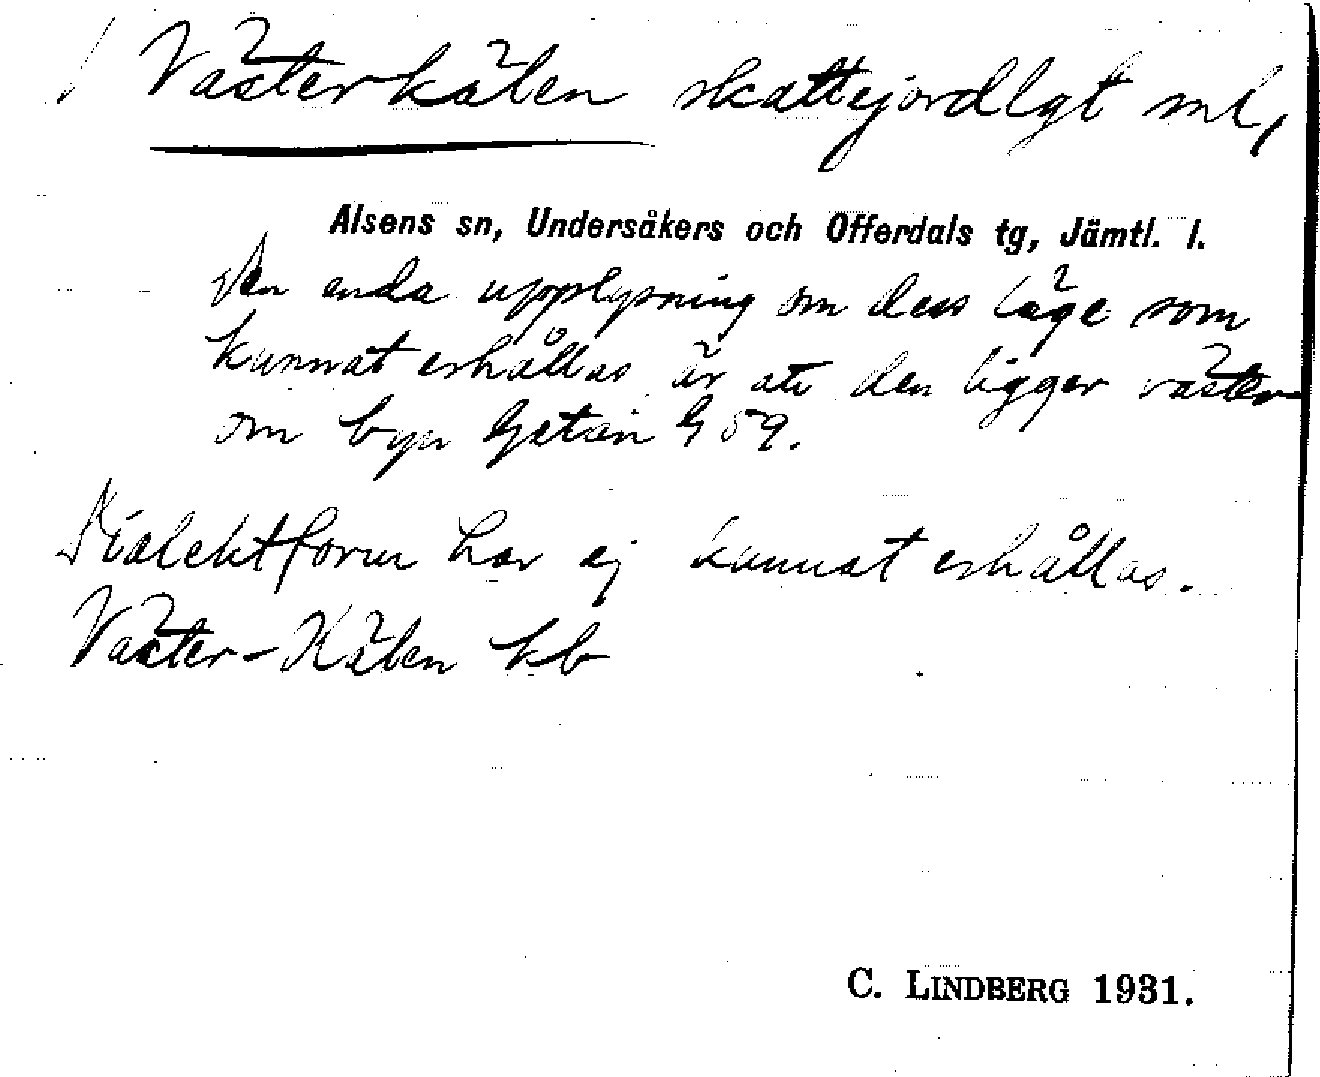 Västerkälen skattejordlgt ml,
Alsens sn, Undersåkers och Offerdals tg, Jämtl. l.
Den enda upplysning om dess läge som
kunnat erhållas är att den ligger väster
om byn Gätan G 59.
Dialektform har ej kunnat erhållas.
Väster-Kälen kb
C. LINDBERG 1931.